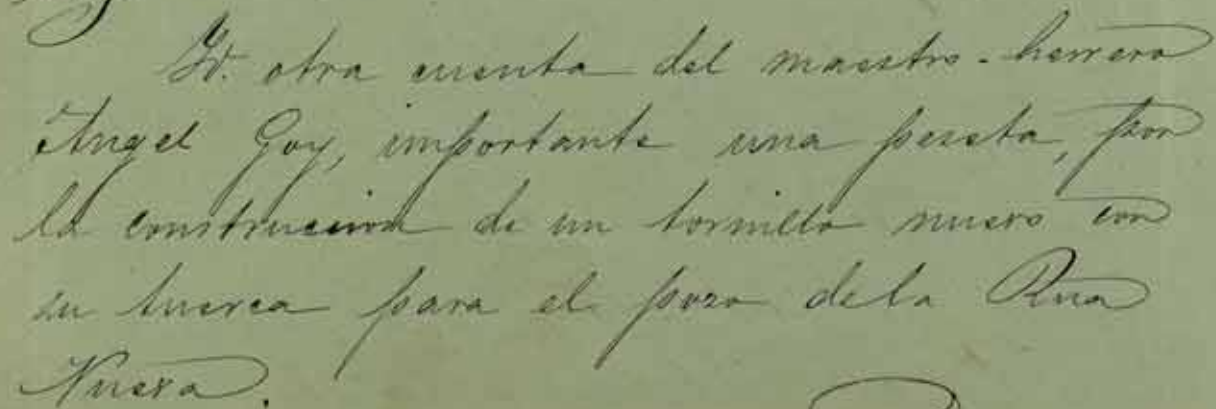 Id. otra cuenta del maestro-herrero
Angel Goy, importante una peseta, por
la construccion de un tornillo nuevo con
su tuerca para el pozo de la Rua
Nueva.